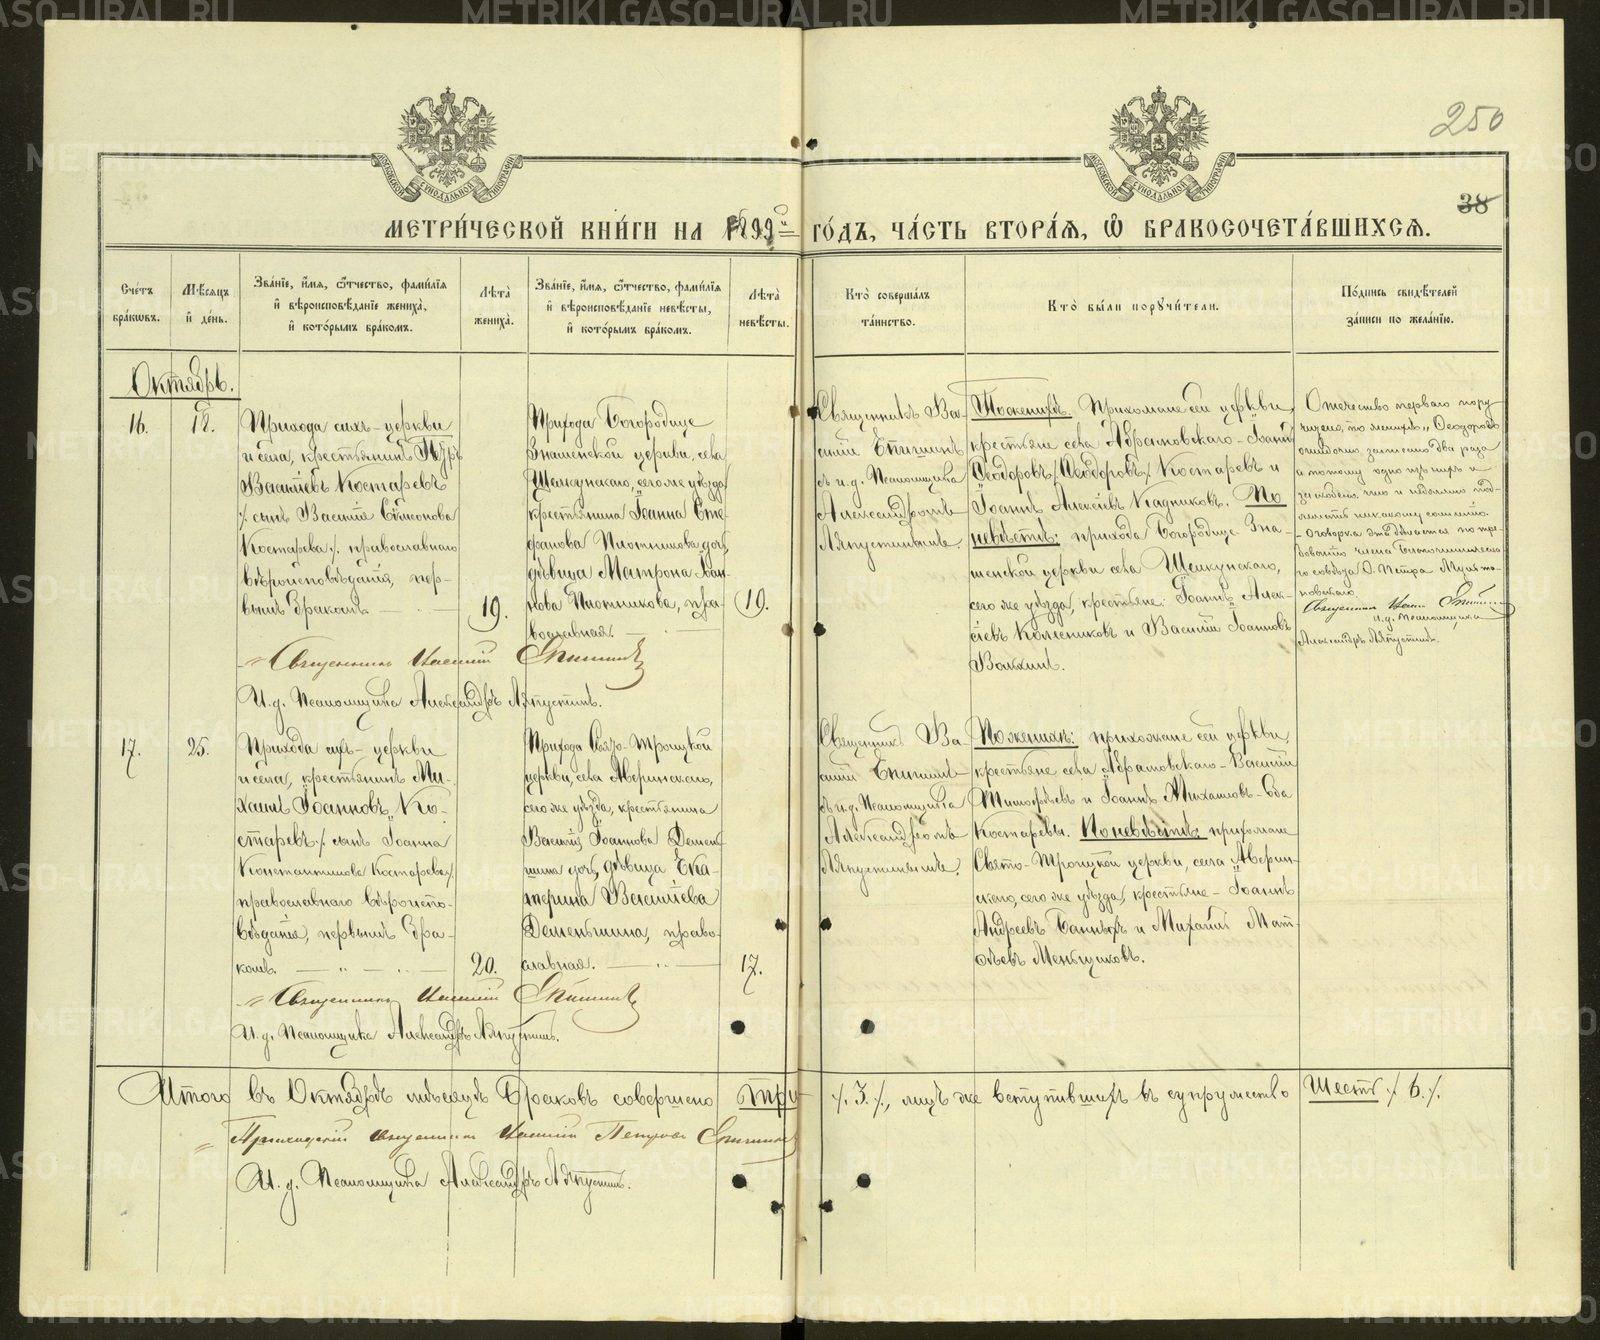 250
38
МЕТРИ́ЧЕСКОЙ КНИ́ГИ НА 1899й ГО́ДЪ, ЧА́СТЬ ВТОРА́Я, Ѿ БРАКОСОЧЕТА́ВШИХСЯ.
Сче́тъ бра́кѡвъ.
Мѣ́сяцъ и҆ де́нь.
Зва́нїе, и҆́мя, ѻ҆́тчество, фами́лїя и҆ вѣроисповѣ́данїе жениха̀, и҆ кото́рымъ бра́комъ.
Лѣ́та̀ жениха̀.
Зва́нїе, и҆́мя, ѻ҆́тчество, фами́лїя и҆ вѣроисповѣ́данїе невѣ́сты, и҆ кото́рымъ бра́комъ.
Лѣ́та̀ невѣ́сты.
Кто̀ соверша́лъ та́инство.
Кто̀ бы́ли порꙋчи́тели.
По́дпись свидѣ́телей за́писи по жела́нїю.
Октябрь.
16.
18.
Прихода сихъ-церкви
и села, крестьянинъ Петръ
Васильевъ Костаревъ
/. сынъ Василія Симеонова
Костарева /. православнаго
вѣроисповѣданія, пер-
вымъ бракомъ.
19.
Прихода Богородице
Знаменской церкви, села
Щелкунскаго, сего же уѣзда
крестьянина Іоанна Сте-
фанова Плотникова дочь,
дѣвица Матрона Іоан-
нова Плотникова, пра-
вославная.
19.
Священникъ Ва-
силій Епишинъ
съ и. д. Псаломщика
Александромъ
Ляпустинымъ.
По женихѣ: прихожане сей церкви,
крестьяне села Абрамовскаго - Іоаннъ
Ѳеодоровъ /Ѳеодоровъ/ Костаревъ и
Іоаннъ Алексіевъ Кадниковъ. По
невѣстѣ: прихода Богородице Зна-
менской церкви села Щелкунскаго,
сего же уѣзда, крестьяне: Іоаннъ Алек-
сіевъ и Василій Іоанновъ
Отчество перваго пору-
чителя, по женихѣ, "Ѳеодоровъ
ошибочно записано два раза
а потому одно изъ нихъ
Священникъ Василій Епишинъ
и. д. псаломщика
Александръ Ляпустинъ.
Священникъ Василій Епишинъ
И. д. Псаломщика Александръ Ляпустинъ.
17.
25.
Прихода сихъ-церкви
и села, крестьянинъ Ми-
хаилъ Іоанновъ Ко-
старевъ /. сынъ Іоанна
Константинова Костарева /.
православнаго вѣроиспо-
вѣданія, первымъ бра-
комъ.
20.
Прихода Свято-Троицкой
церкви, села Аверинскаго,
сего же уѣзда, крестьянина
Василія Іоаннова Демен-
шина дочь, дѣвица Ека-
терина Васильева
Деменьшина, право-
славная.
17.
Священникъ Ва-
силій Епишинъ
съ и. д. Псаломщика
Александромъ
Ляпустинымъ.
По женихѣ: прихожане сей церкви,
крестьяне села Абрамовскаго - Василій
Тимофѣевъ и Іоаннъ Михаиловъ - оба
Костаревы. По невѣстѣ: прихожане
Свято-Троицкой церкви, села Аверин-
скаго, сего же уѣзда, крестьяне - Іоаннъ
Андреевъ и Михаилъ Мат-
ѳіевъ Меньщиковъ.
Священникъ Василій Епишинъ
И. д. Псаломщика Александръ Ляпустинъ.
Итого въ Октябрѣ мѣсяцѣ браковъ совершено три /. 3. /., лицъ же вступившихъ въ супружество Шесть /. 6. /.
Приходскій священникъ Василій Петровъ Епишинъ
И. д. Псаломщика Александръ Ляпустинъ.
METRIKI.GASO-URAL.RU